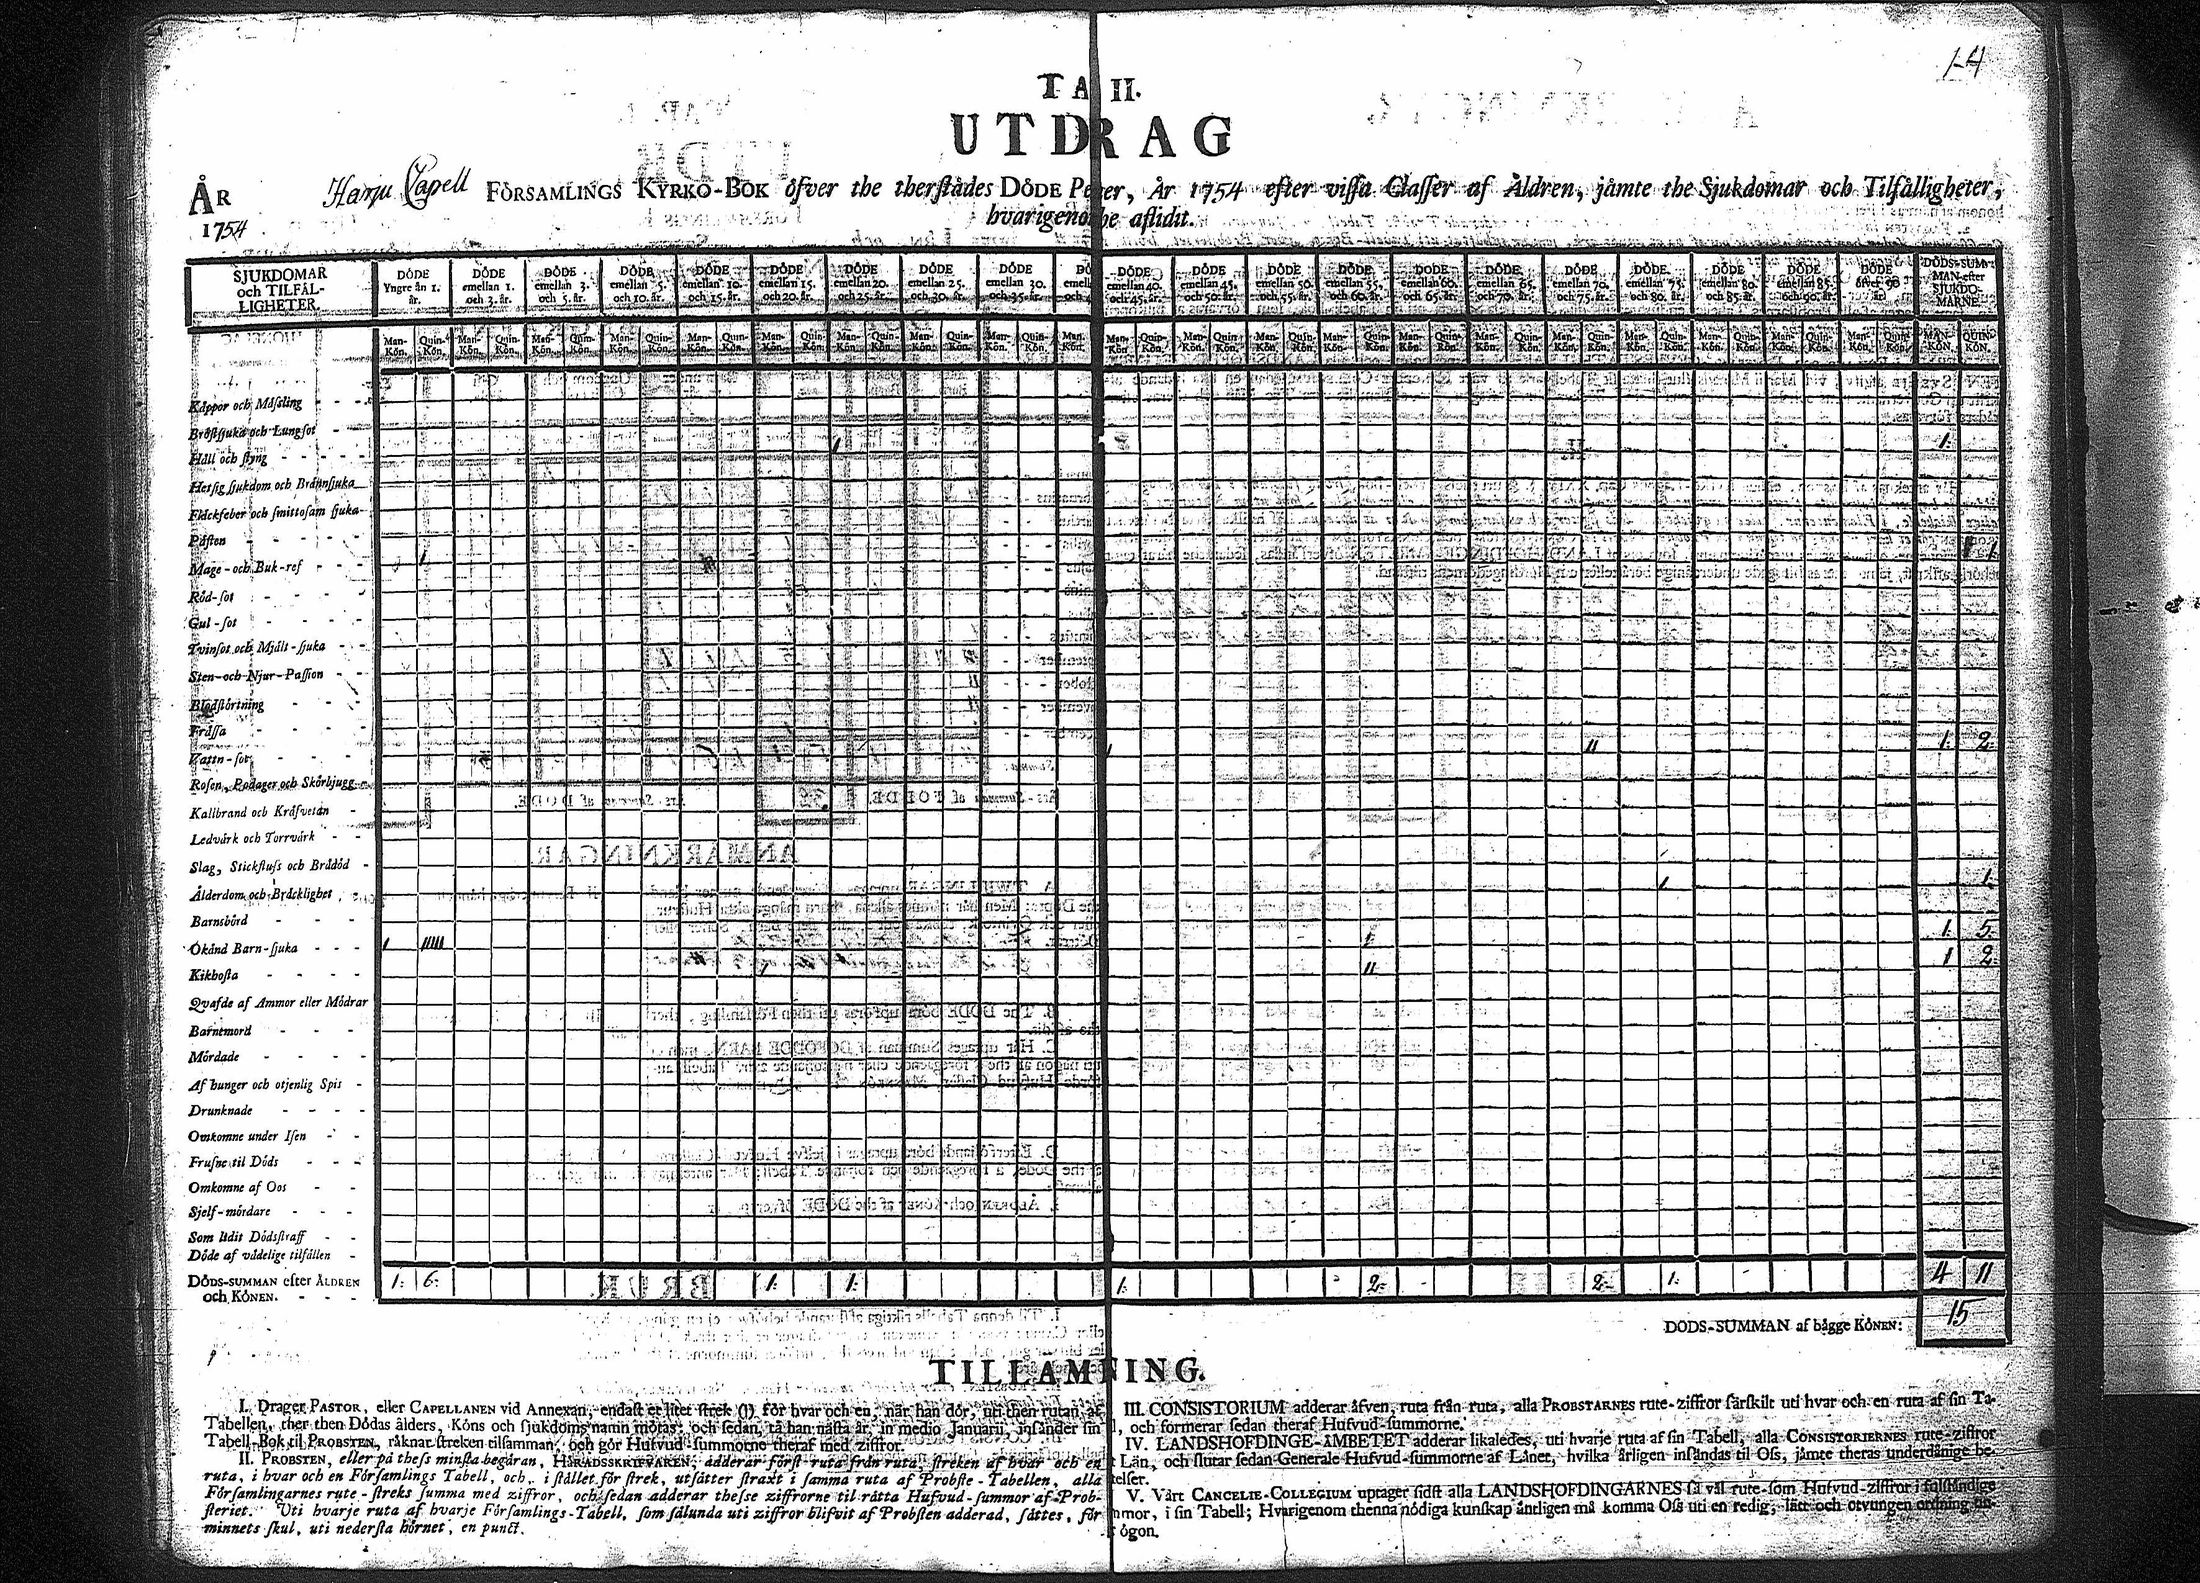 14
TA II.
UTDRAG
ÅR
1754
Harju Capell FÖRSAMLINGS KYRKO-BOK öfver the therstädes DÖDE Pe er, År 1754 efter vissa Classer af Åldren, jämte the Sjukdomar och Tilfälligheter,
hvarigeno be aflidit.
SJUKDOMAR och TILFÄL-LIGHETER.
DÖDE Yngre än 1. år.
DÖDE emellan 1. och 3. år.
DÖDE emellan 3. och 5. år.
DÖDE emellan 5. och 10. år.
DÖDE emellan 10. och 15. år.
DÖDE emellan 15. och 20. år.
DÖDE emellan 20. och 25. år.
DÖDE emellan 25. och 30. år.
DÖDE emellan 30. och 35. år.
DÖDE emellan 40. och 45. år.
DÖDE emellan 45. och 50. år.
DÖDE emellan 50. och 55. år.
DÖDE emellan 55. och 60. år.
DÖDE emellan 60. och 65. år.
DÖDE emellan 65. och 70. år.
DÖDE emellan 70. och 75. år.
DÖDE emellan 75. och 80. år.
DÖDE emellan 80. och 85. år.
DÖDE emellan 85. och 90. år.
DÖDE öfver 90 år.
DÖDS-SUMMAN efter SJUKDOMARNE
Man-Kön. Quin-Kön. Man-Kön. Quin-Kön. Man-Kön. Quin-Kön. Man-Kön. Quin-Kön. Man-Kön. Quin-Kön. Man-Kön. Quin-Kön. Man-Kön. Quin-Kön. Man-Kön. Quin-Kön. Man-Kön. Quin-Kön. Man-Kön. Man-Kön. Quin-Kön. Man-Kön. Quin-Kön. Man-Kön. Quin-Kön. Man-Kön. Quin-Kön. Man-Kön. Quin-Kön. Man-Kön. Quin-Kön. Man-Kön. Quin-Kön. Man-Kön. Quin-Kön. Man-Kön. Quin-Kön. Man-Kön. Quin-Kön. Man-Kön. Quin-Kön. MAN-KÖN. QUIN-KÖN.
Koppor och Mässling
Bröstsjuka och Lungsot
Håll och styng 1 1.
Hetsig sjukdom och Brännsjuka
Fläckfeber och smittosam sjuka
Påsten
Mage- och Buk-ref 1 1.
Röd-sot
Gul-sot
Tvinsot och Mjält-sjuka
Sten- och Njur-Passion
Blodstörtning
Frässa
Vattn-sot 1 II 1. 2.
Rosen, Podager och Skörbjugg
Kallbrand och Kräfvetän
Ledvärk och Torrvärk
Slag, Stickfluss och Brådöd
Ålderdom och Bräcklighet 1 1.
Barnsbörd
Okänd Barn-sjuka 1 IIIII 1. 5.
Kikhosta 1 II 1 2.
Qväfde af Ammor eller Mödrar
Barnemord
Mördade
Af hunger och otjenlig Spis
Drunknade
Omkomne under Isen
Frusne til Döds
Omkomne af Oos
Sjelf-mördare
Som lidit Dödsstraff
Döde af vådelige tilfällen
DÖDS-SUMMAN efter ÅLDREN och KÖNEN. 1. 6. 1. 1. 1. 2. 2. 1. 4 11
DÖDS-SUMMAN af bägge KÖNEN: 15
TILLÄMNING.
I. Drager PASTOR, eller CAPELLANEN vid Annexan, endast et litet strek (I) för hvar och en, når han dör, uti then rutan, af
Tabellen, ther then Dödas ålders, Köns och sjukdoms namn mötas: och sedan, tå han nästa år, in medio Januarii, insänder sin
Tabell-Bok til PROBSTEN, räknar streken tilsamman, och gör Hufvud-summorne theraf med ziffror.
II. PROBSTEN, eller på thess minsta begäran, HÄRADSSKRIFVAREN, adderar först ruta från ruta, streken af hvar och en
ruta, i hvar och en Församlings Tabell, och, i stället för strek, utsätter straxt i samma ruta af Probste-Tabellen, alla
Församlingarnes rute-streks summa med ziffror, och sedan adderar thesse ziffrorne til rätta Hufvud-summor af Prob-
steriet. Uti hvarje ruta af hvarje Församlings-Tabell, som sålunda uti ziffror blifvit af Probsten adderad, sättes, för
minnets skul, uti nedersta hörnet, en punct.
III. CONSISTORIUM adderar äfven, ruta från ruta, alla PROBSTARNES rute-ziffror särskilt uti hvar och en ruta af sin Ta-
l, och formerar sedan theraf Hufvud-summorne.
IV. LANDSHÖFDINGE-ÄMBETET adderar likaledes, uti hvarje ruta af sin Tabell, alla CONSISTORIERNES rute-ziffror
Län, och slutar sedan Generale Hufvud-summorne af Länet, hvilka årligen insändas til Oss, jämte theras underdånige be-
telser.
V. Vårt CANCELIE-COLLEGIUM uptager sidst alla LANDSHÖFDINGARNES så väl rute- som Hufvud-ziffror i fullständige
mmor, i sin Tabell; Hvarigenom thenna nödiga kunskap äntligen må komma Oss uti en redig, lätt och otvungen ordning un-
ögon.